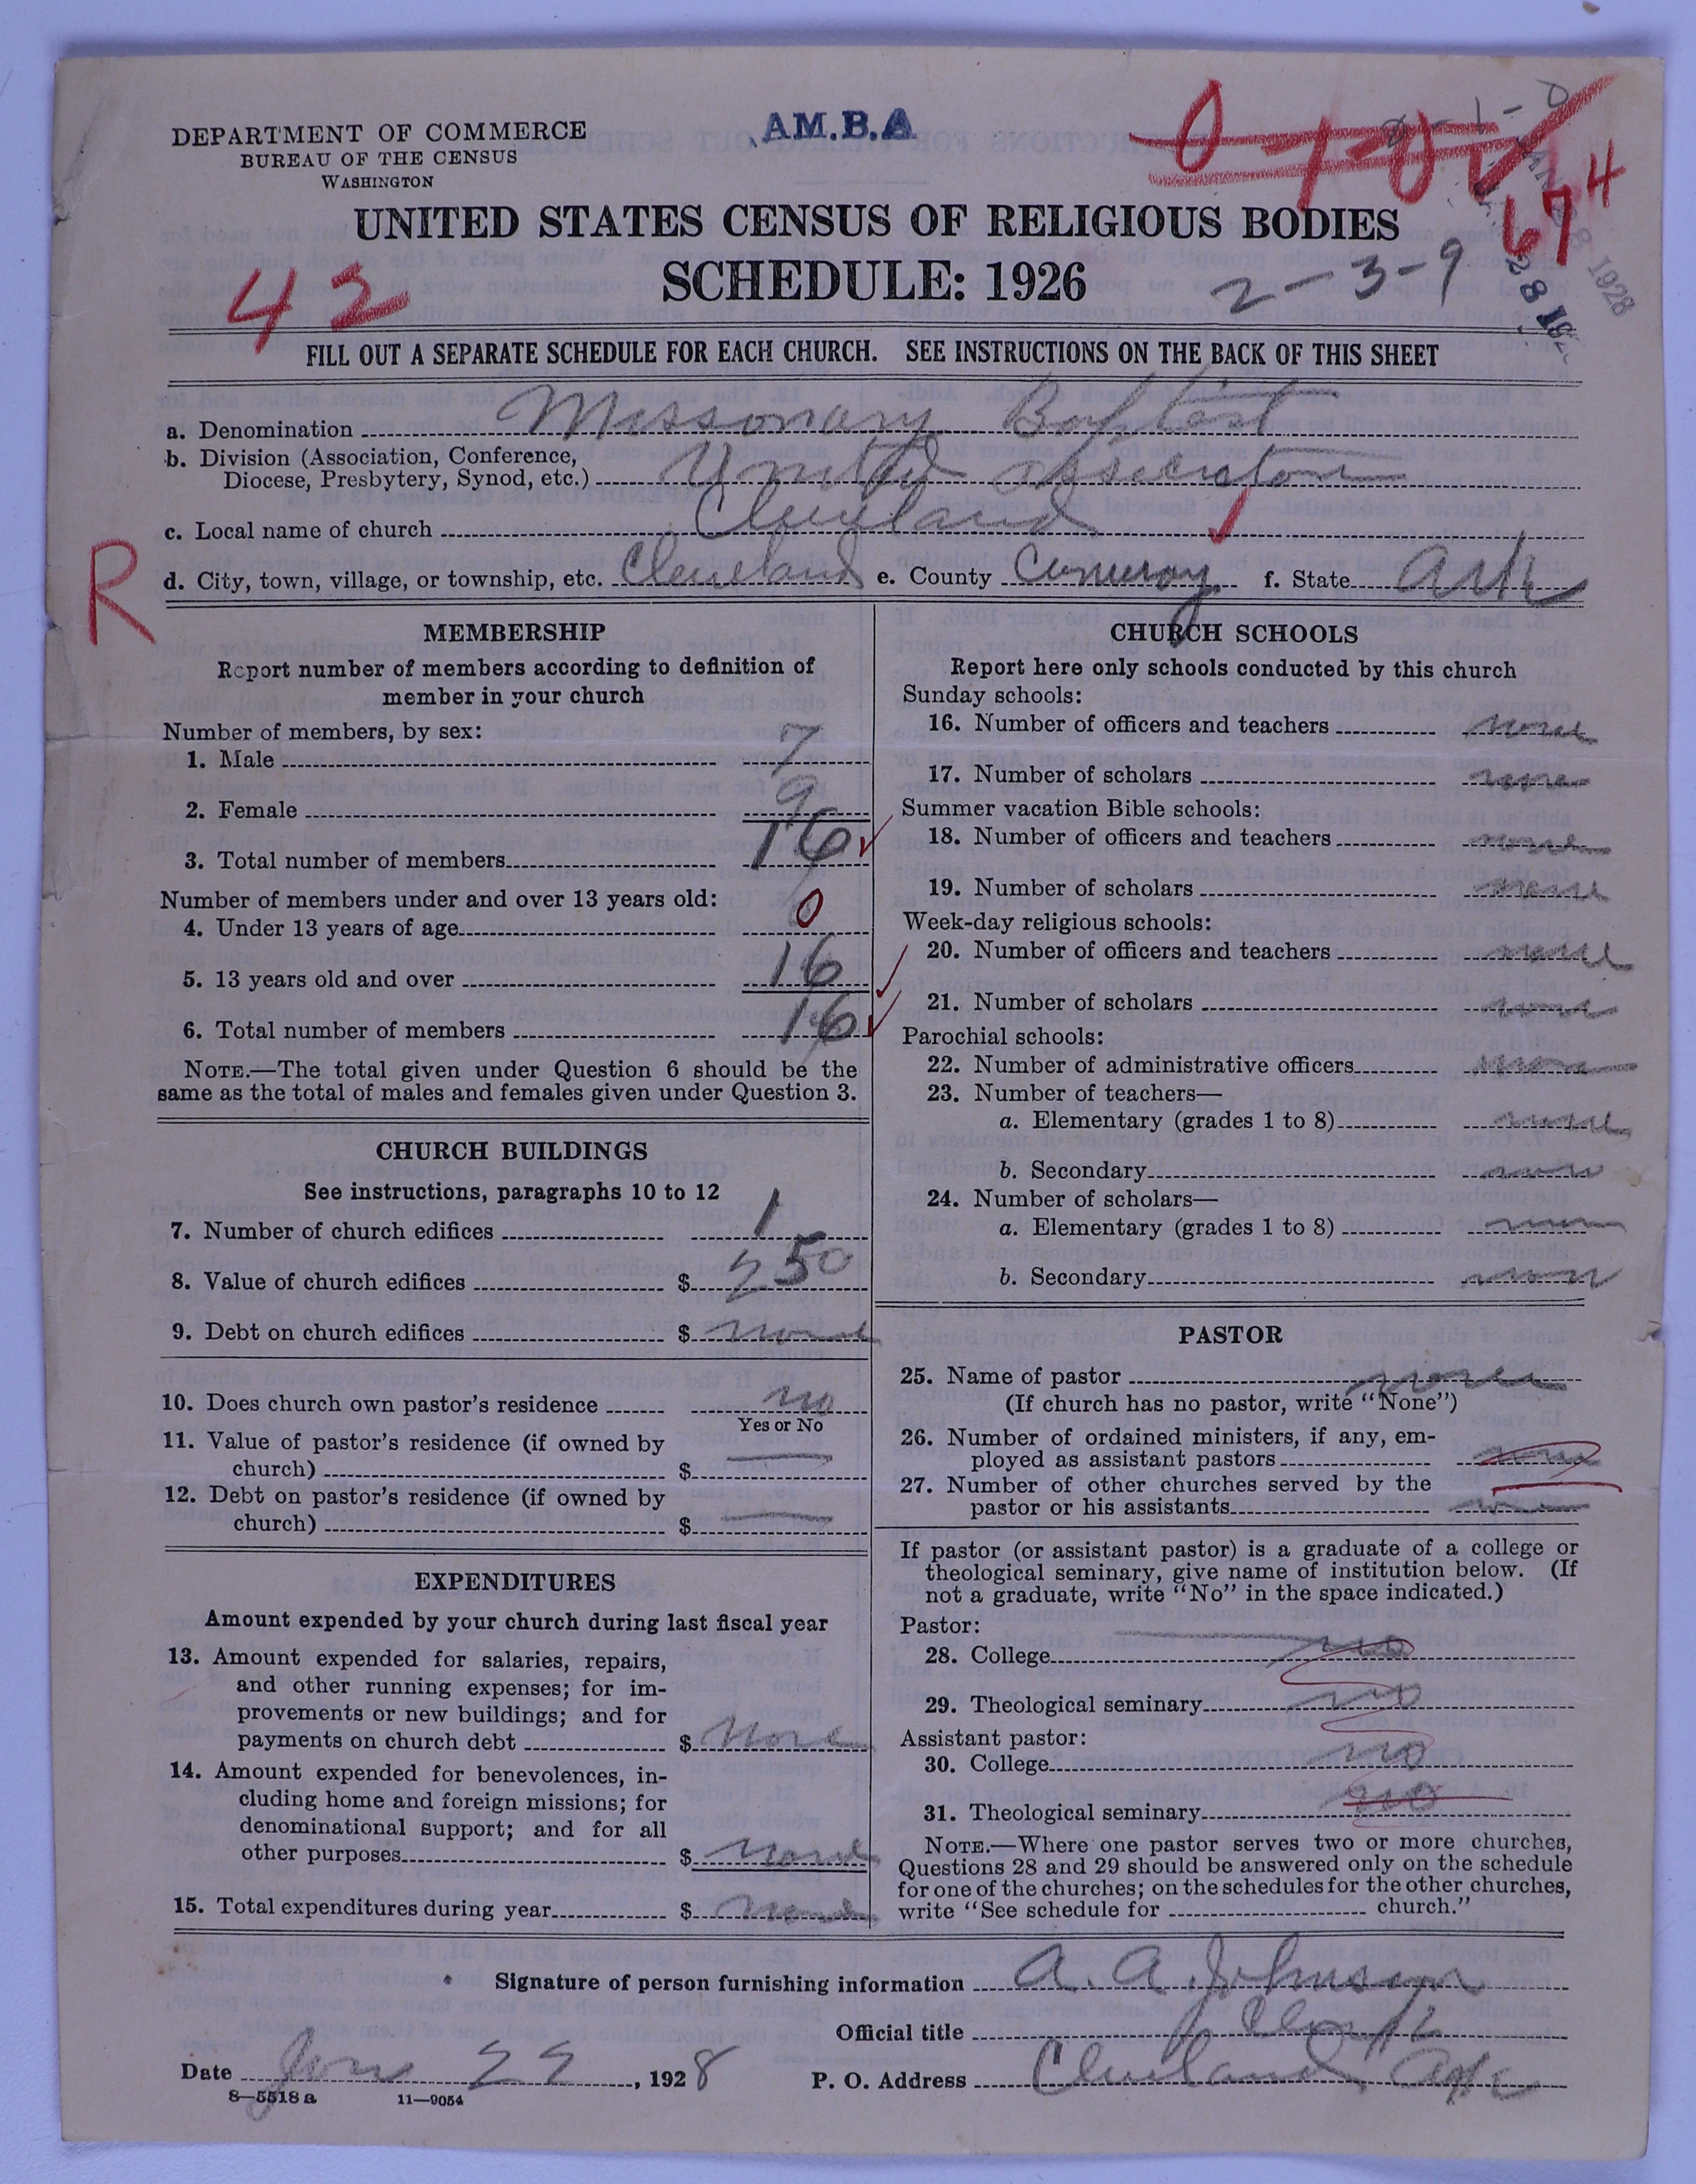 DEPARTMENT OF COMMERCE
BUREAU OF THE CENSUS
WASHINGTON
A.M.B.A.
674
UNITED STATES CENSUS OF RELIGIOUS BODIES
42
SCHEDULE: 1926
2-3-9
FILL OUT A SEPARATE SCHEDULE FOR EACH CHURCH. SEE INSTRUCTIONS ON THE BACK OF THIS SHEET
a. Denomination Missonary Baptist
b. Division (Association, Conference,
Diocese, Presbytery, Synod, etc.) United
c. Local name of church Cleveland
R
d. City, town, village, or township, etc. Cleveland e. County Conway f. State Ark
MEMBERSHIP
Report number of members according to definition of
member in your church
Number of members, by sex:
1. Male 7
2. Female 9
3. Total number of members 16
Number of members under and over 13 years old:
4. Under 13 years of age 0
5. 13 years old and over 16
6. Total number of members 16
NOTE.—The total given under Question 6 should be the
same as the total of males and females given under Question 3.
CHURCH BUILDINGS
See instructions, paragraphs 10 to 12
7. Number of church edifices 1
8. Value of church edifices $ 250
9. Debt on church edifices $ none
10. Does church own pastor's residence no
Yes or No
11. Value of pastor's residence (if owned by
church) $ —
12. Debt on pastor's residence (if owned by
church) $ —
EXPENDITURES
Amount expended by your church during last fiscal year
13. Amount expended for salaries, repairs,
and other running expenses; for im-
provements or new buildings; and for
payments on church debt $ None
14. Amount expended for benevolences, in-
cluding home and foreign missions; for
denominational support; and for all
other purposes $ None
15. Total expenditures during year $ None
CHURCH SCHOOLS
Report here only schools conducted by this church
Sunday schools:
16. Number of officers and teachers none
17. Number of scholars none
Summer vacation Bible schools:
18. Number of officers and teachers none
19. Number of scholars none
Week-day religious schools:
20. Number of officers and teachers none
21. Number of scholars none
Parochial schools:
22. Number of administrative officers none
23. Number of teachers—
a. Elementary (grades 1 to 8) none
b. Secondary none
24. Number of scholars—
a. Elementary (grades 1 to 8) none
b. Secondary none
PASTOR
25. Name of pastor none
(If church has no pastor, write "None")
26. Number of ordained ministers, if any, em-
ployed as assistant pastors none
27. Number of other churches served by the
pastor or his assistants none
If pastor (or assistant pastor) is a graduate of a college or
theological seminary, give name of institution below. (If
not a graduate, write "No" in the space indicated.)
Pastor:
28. College no
29. Theological seminary no
Assistant pastor:
30. College no
31. Theological seminary no
NOTE.—Where one pastor serves two or more churches,
Questions 28 and 29 should be answered only on the schedule
for one of the churches; on the schedules for the other churches,
write "See schedule for church."
Signature of person furnishing information A. A. Johnson
Official title Clerk
Date Jan 22, 1928 P. O. Address Cleveland Ark
8—5518a 11—9054